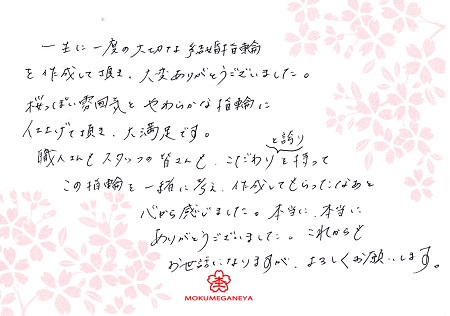 一生に一度の大切な結婚指輪
を作成して頂き、大変ありがとうございました。
桜っぽい雰囲気とやわらかな指輪に
仕上げて頂き、大満足です。
職人さんもスタッフの皆さんも、こだわりと誇りを持って
この指輪を一緒に考え、作成してもらったなあと
心から感じました。本当に、本当に
ありがとうございました。これからも
お世話になりますが、よろしくお願いします。
MOKUMEGANEYA